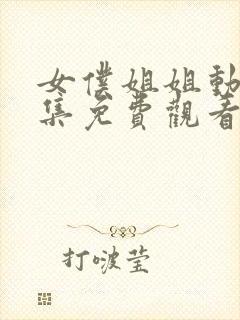 女僕姐姐動
集免費觀看
打啵莹